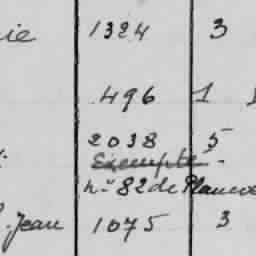 ie 1324 3
496 1
2038 5
Exempte.
n° 82 de Plancoë
Jean 1075 3